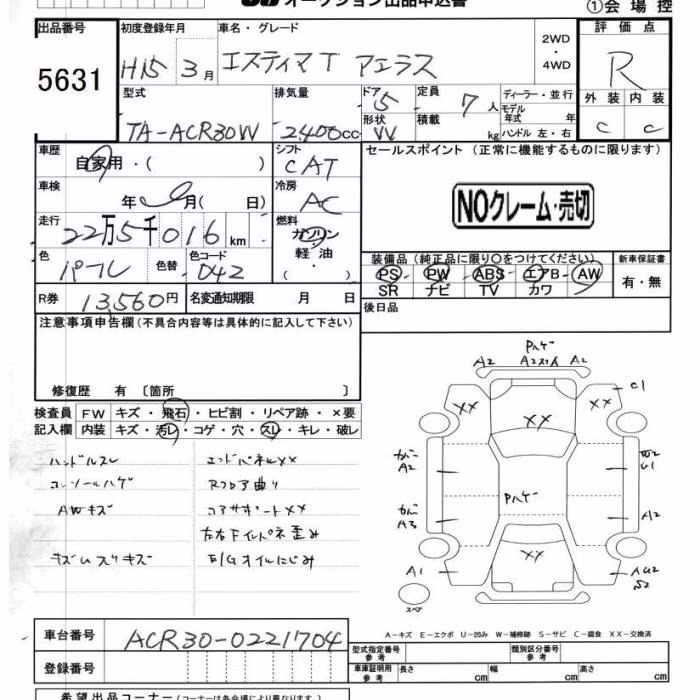 オークション出品申込書
①会場控
出品番号 5631
初度登録年月 H15 3月
車名・グレード エスティマT アエラス
2WD・4WD
評価点 R
外装 C 内装 C
型式 TA-ACR30W
排気量 2400cc
ドア 5
形状 W
定員 7人
積載 kg
ディーラー・並行
モデル年式 年
ハンドル 左・右
車歴 自家用・( )
シフト CAT
セールスポイント (正常に機能するものに限ります)
車検 年 月( 日)
冷房 AC
NOクレーム・売切
走行 22万5千016km
燃料 ガソリン
軽油・
・( )
色 パープル 色替
色コード 042
装備品 (純正品に限り○をつけてください)
新車保証書
PS PW ABS エアB AW
SR ナビ TV カワ
有・無
R券 13,560円
名変通知期限 月 日
後日品
注意事項申告欄 (不具合内容等は具体的に記入して下さい)
修復歴 有 〔箇所 〕
検査員記入欄
FW キズ・飛石・ヒビ割・リペア跡・×要
内装 キズ・汚レ・コゲ・穴・スレ・キレ・破レ
ハンドルスレ
コンソールハゲ
AWキズ
キズムスリキズ
エンドパネルXX
Rフロア曲り
コアサポートXX
左右下インパネ歪み
E/Gオイルにじみ
Pハゲ
A2 A2スリキズ A2
C1
XX XX XX
A2
W2
U1
Pハゲ
A3
A2
XX
A1
AU2
S2
スペア
A-キズ E-エクボ U-凹み W-補修跡 S-サビ C-腐食 XX-交換済
車台番号 ACR30-0221704
登録番号
型式指定番号 参考
類別区分番号 参考
車庫証明用 参考
長さ cm 幅 cm 高さ cm
希望出品コーナー (コーナーは各会場により異なります。)